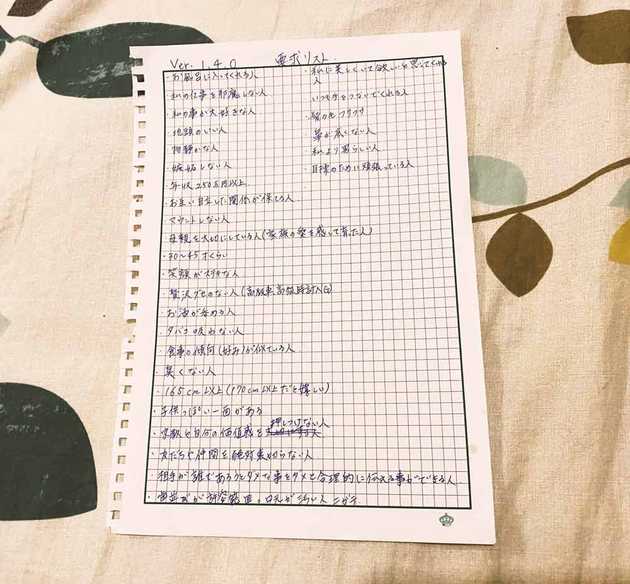 Ver. 1.4.0 要求リスト
・お風呂に入ってくれる人
・私の仕事を邪魔しない人
・私の事が大好きな人
・地頭のいい人
・物静かな人
・嫉妬しない人
・年収250万円以上
・お互い自立した関係が保てる人
・マウントしない人
・母親を大切にしている人(家族の愛を感じて育た人)
・30〜45才くらい
・笑顔が大好きな人
・贅沢グセのない人(高級車、高級時計NG)
・お酒が飲める人
・タバコ吸わない人
・食事の傾向(好み)が似ている人
・臭くない人
・165cm以上(170cm以上だと嬉しい)
・子供っぽい一面がある
・宗教や自分の価値感を押しつけない人
・友だちや仲間を絶対裏切らない人
・相手が誰であろうとダメな事をダメと合理的に伝える事ができる人
・私に美しくいて欲しいと思ってくれる人
・いつも手をつないでくれる人
・鼻が低くない人
・私より男らしい人
・目標のために頑張っている人